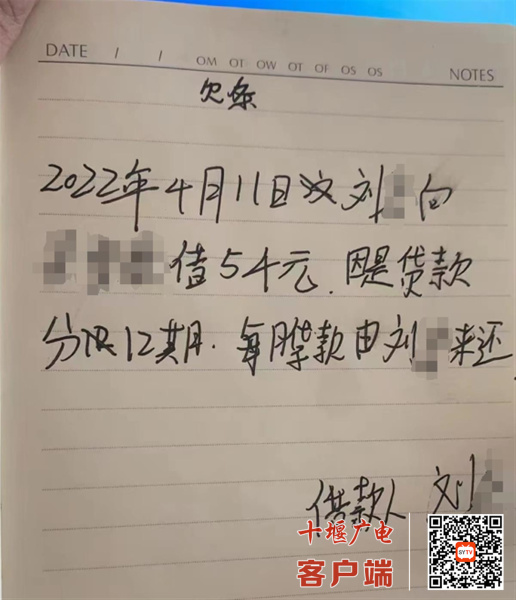 DATE / / OM OT OW OT OF OS OS NOTES
欠条
2022年4月11日 刘 向
借5千元.因是贷款
分 12期.每月贷款由刘 来还
借款人 刘
十堰广电
客户端
SYTV